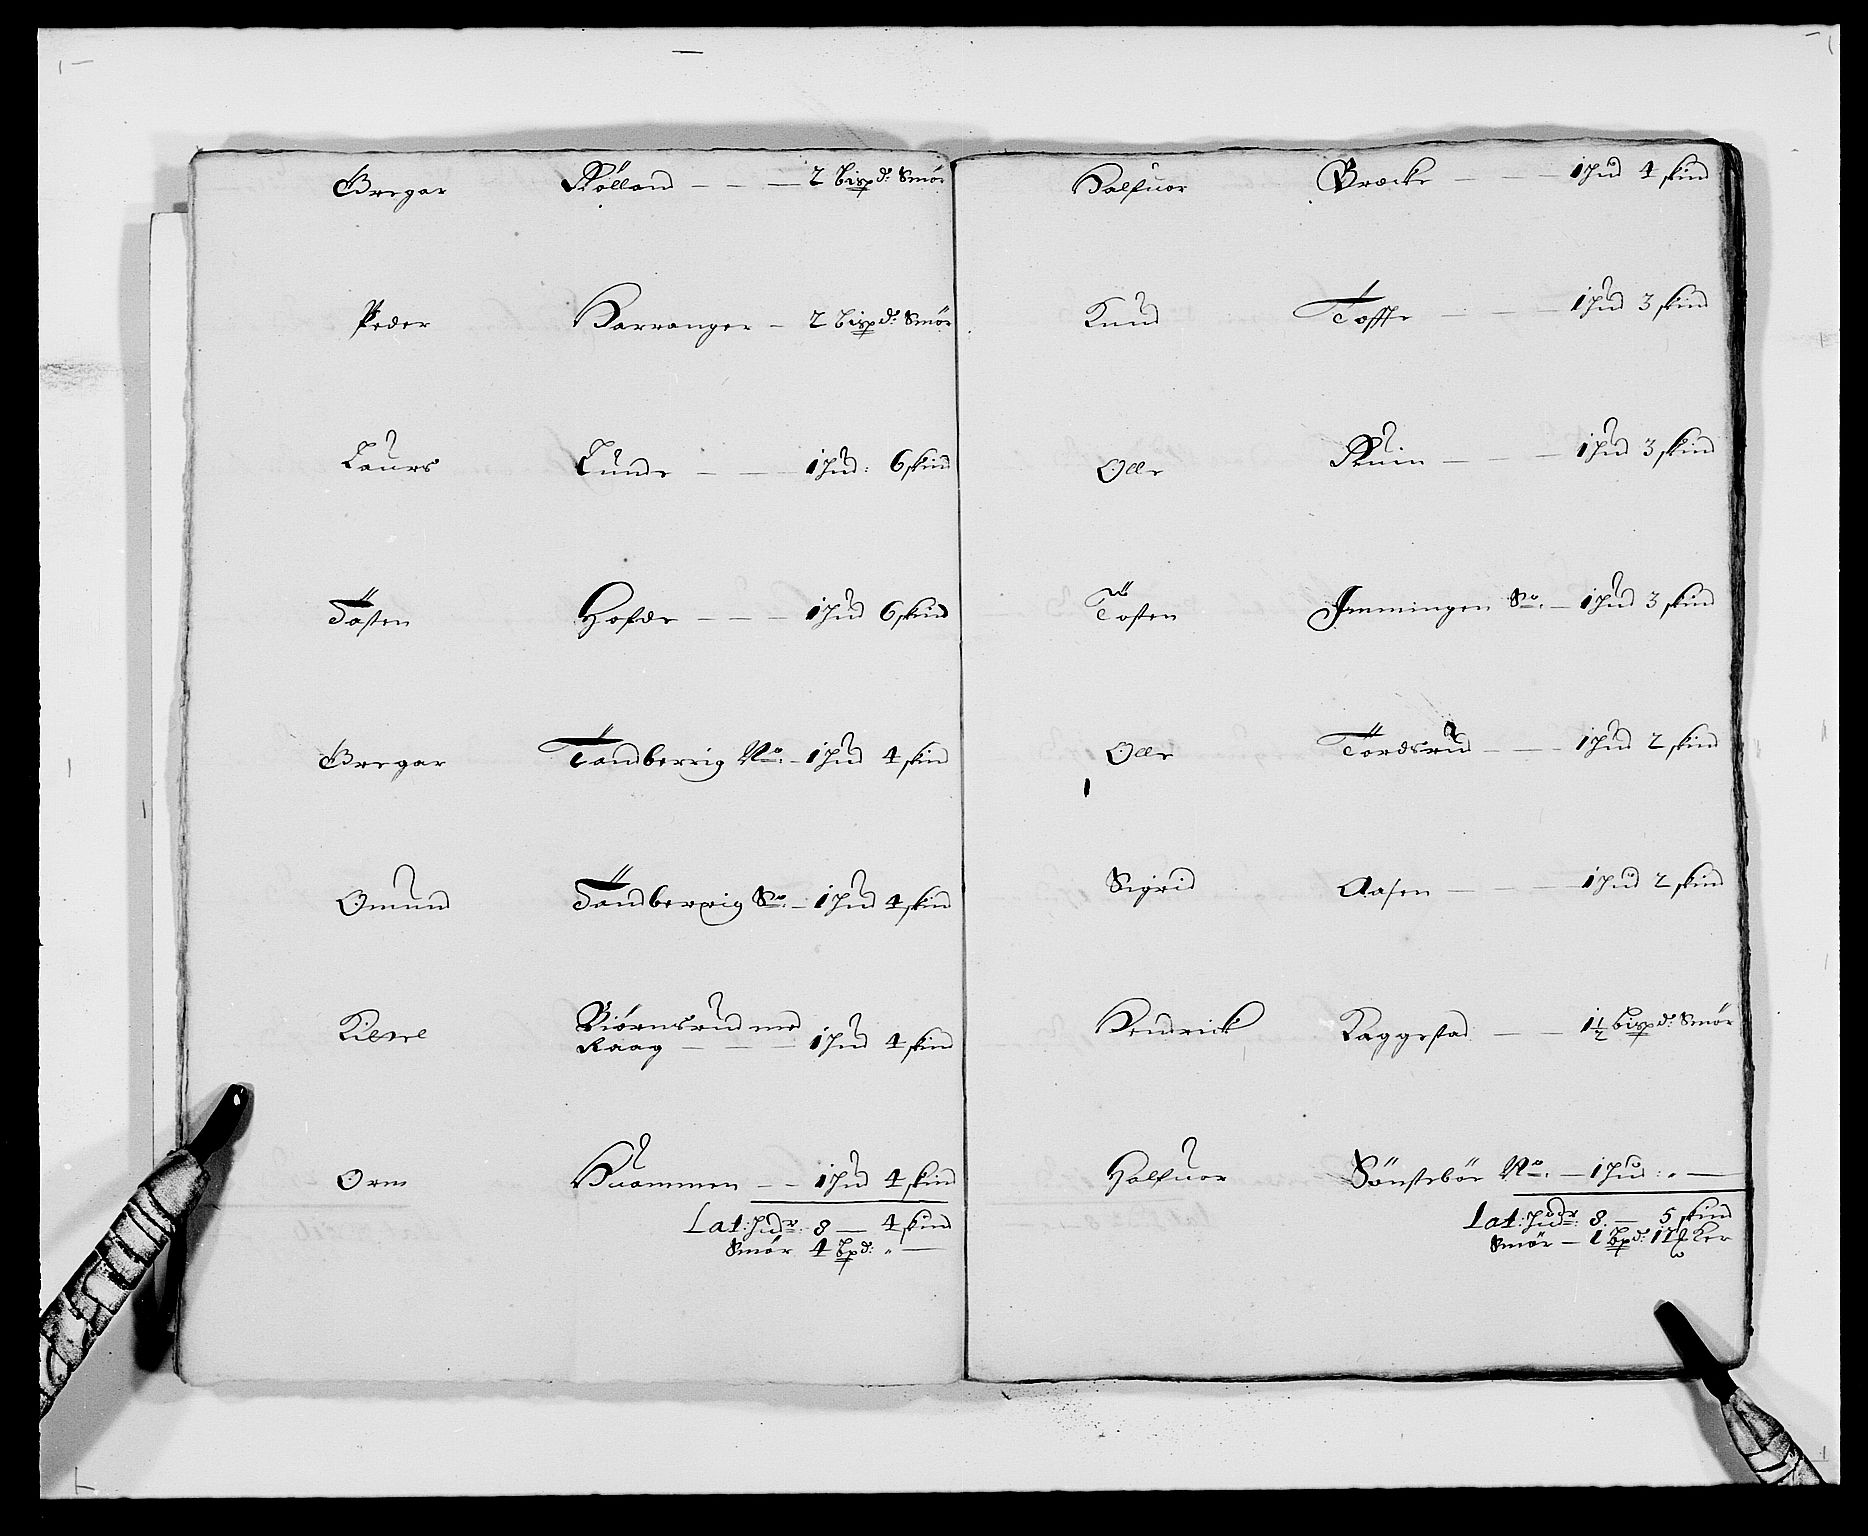 Gregar Rølland - - - 2 bispd: Smør
Peder Harranger - 2 bispd: Smør
Laurs Lunde - - 1 hud: 6 skind
Tosten Hofde - - - 1 hud 6 skind
Gregar Tandberrig No: - 1 hud 4 skind
Omund Tandberrig So: - 1 hud 4 skind
Biørnsrud med
Raag - - - 1 hud 4 skind
Orm Huammen - - 1 hud 4 skind
Lat: hudr: 8 - 4 skind
Smør 4 bpd: " -
Halfuor Bræcke - - - 1 hud 4 skind
Knud Toffte - - - 1 hud 3 skind
Olle Ruin - - - 1 hud 3 skind
Tosten Jmmingen So. - 1 hud 3 skind
Olle Tordsrud - - - 1 hud 2 skind
Sigrid Aasen - - - 1 hud 2 skind
Hendrick Kaggestad - - 1 1/2 bispd: Smør
Halfuor Sønstebøe No. - 1 hud: " -
Lat: hudr: 8 - 5 skind
Smør - 1 bpd: 1 1/2 Ker